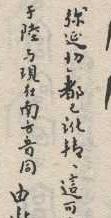 弥延切，都已訛轉，這可
于陸与現在南方音同
由